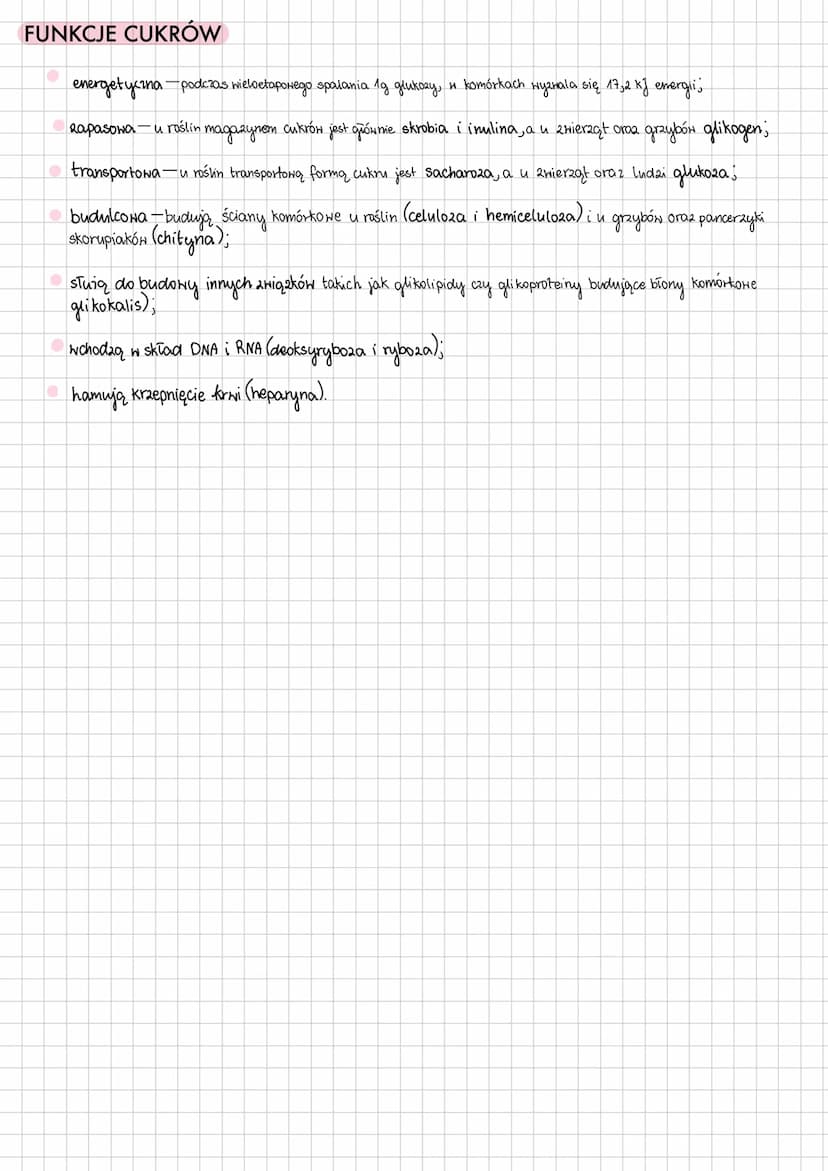 FUNKCJE CUKRÓW
energetyczna — podczas wieloetapowego spalania 1g glukozy, w komórkach wyzwala się 17,2 kJ energii;
zapasowa — u roślin magazynem cukrów jest głównie skrobia i inulina, a u zwierząt oraz grzybów glikogen;
transportowa — u roślin transportową formą cukru jest sacharoza, a u zwierząt oraz ludzi glukoza;
budulcowa — budują ściany komórkowe u roślin (celuloza i hemiceluloza) i u grzybów oraz pancerzyki
skorupiaków (chityna);
służą do budowy innych związków takich jak glikolipidy czy glikoproteiny budujące błony komórkowe
glikokalis);
wchodzą w skład DNA i RNA (deoksyryboza i ryboza);
hamują krzepnięcie krwi (heparyna).